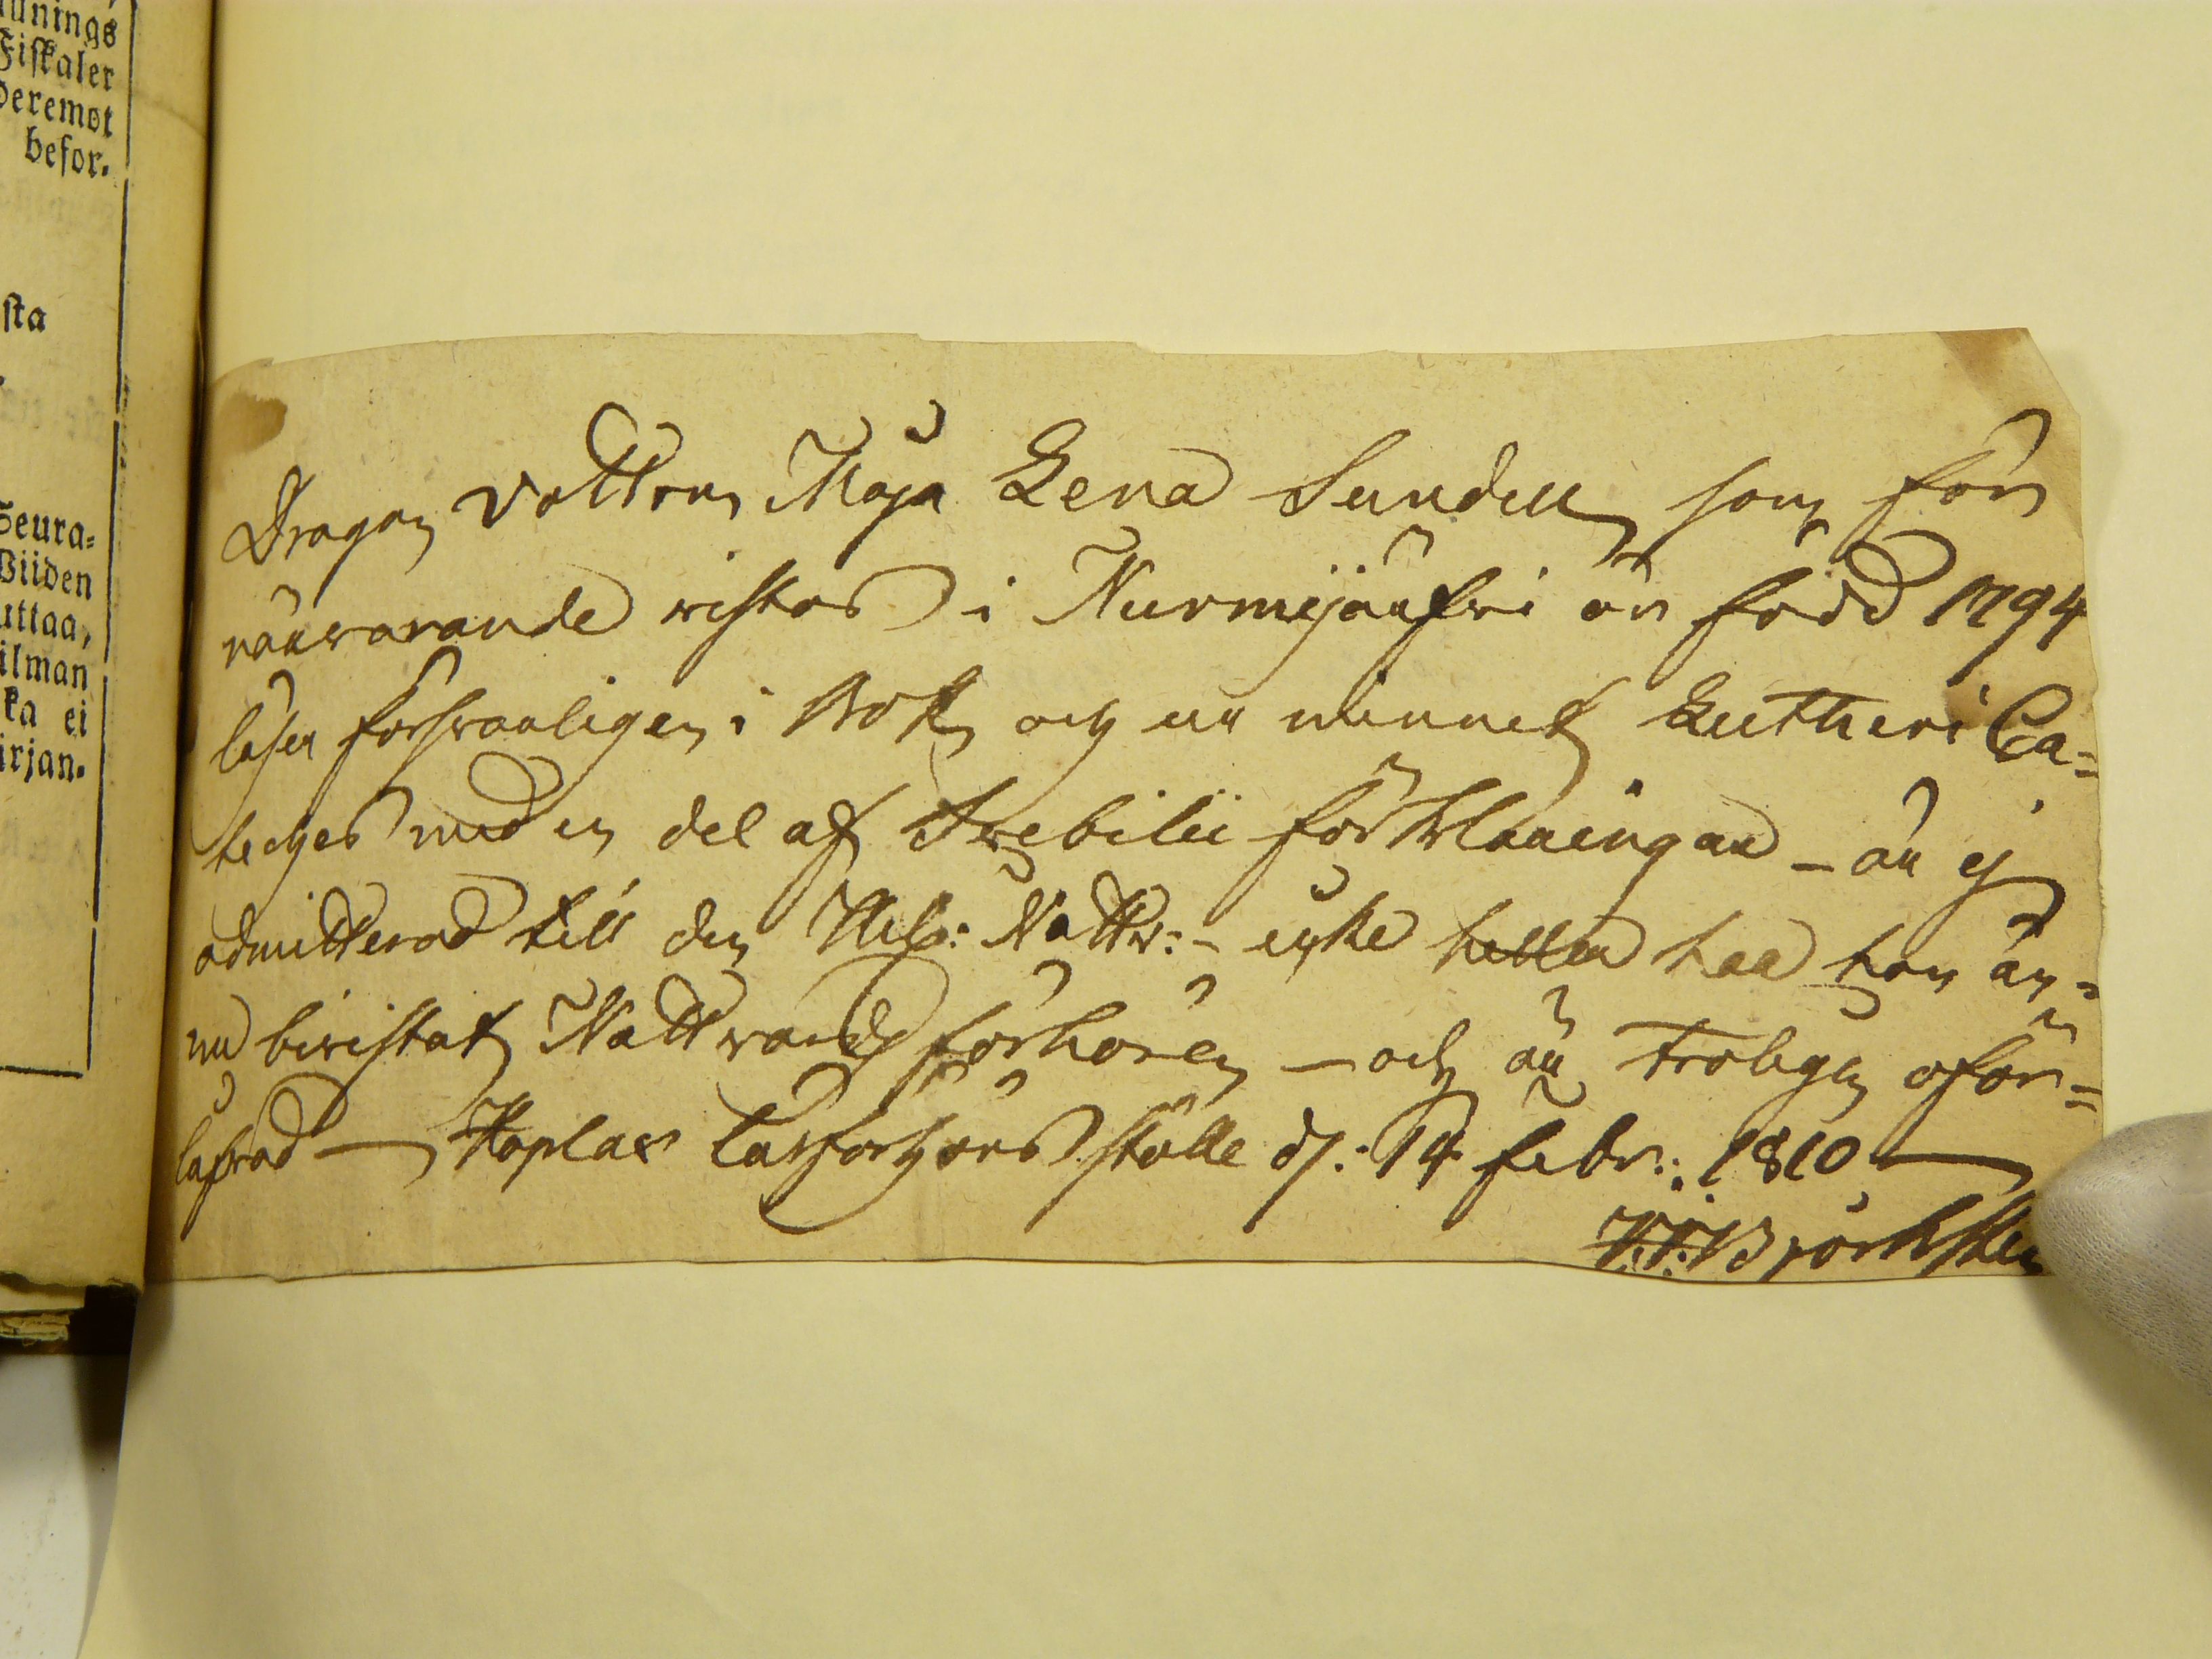 nnings
Fiskaler
Deremot
befor.
sta
Seura=
Wiiden
uttaa,
ilman
ka ei
irjan.
Dragon Dottren Maja Lena Sundell som för
närwarande wistas i Nurmijärfwi är född 1794
läser förswarligen i Bok och ur minnet Lutheri Ca=
teches med en del af Swebilii förklaaingar – är ej
admitterad till den Helg: Nattw: – icke heller har hon än=
nu biwistat Nattwards förhören – och är troligen oför=
lofwad – Hoplax Läsförhörs ställe d: 14 Febr: 1810
Björksten